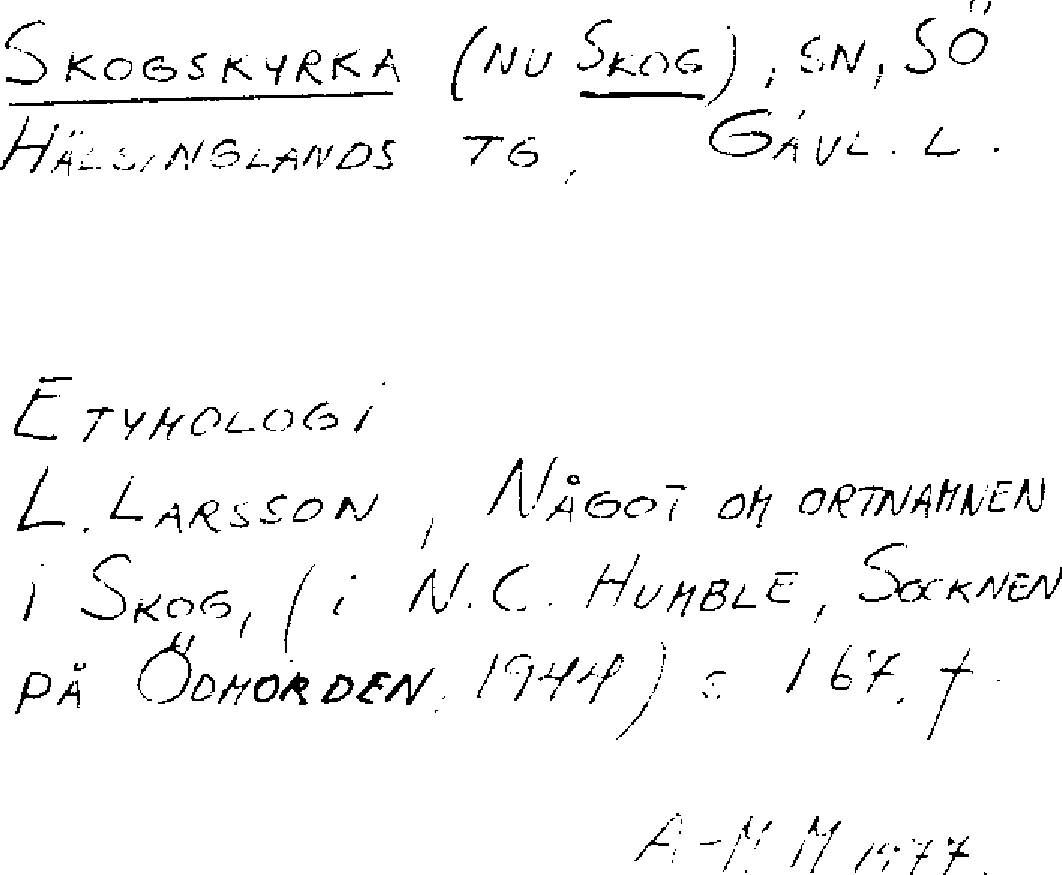 SKOGSKYRKA (NU SKOG), SN, SÖ
HÄLSINGLANDS TG, GÄVL. L.
ETYMOLOGI
L. LARSSON, NÅGOT OM ORTNAMNEN
I SKOG, (i N.C. HUMBLE, SOCKNEN
PÅ ÖDMORDEN. 1944) s 167. †
A-M M 1977.